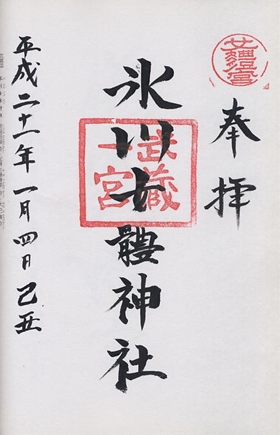 奉拝
武蔵
一宮
氷川女體神社
平成二十一年一月四日己丑